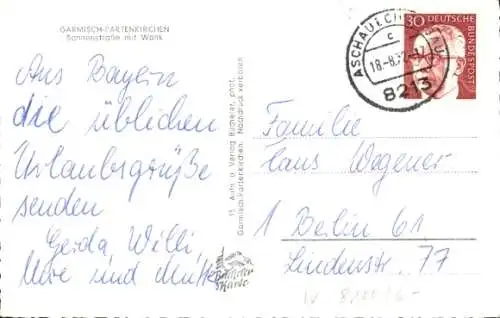 GARMISCH-PARTENKIRCHEN
Sonnenstraße mit Wank
Aus Bayern
die üblichen
Urlaubsgrüße
senden
Gerda, Willi,
Uwe und
15 Aufn. u. Verlag Bücheler, phot.
Garmisch-Partenkirchen. Nachdruck verboten
30 DEUTSCHE
BUNDESPOST
ASCHAU
c
18.-8.72
8213
Familie
Hans Wegener
1 Berlin 61
Lindenstr. 77
Karte